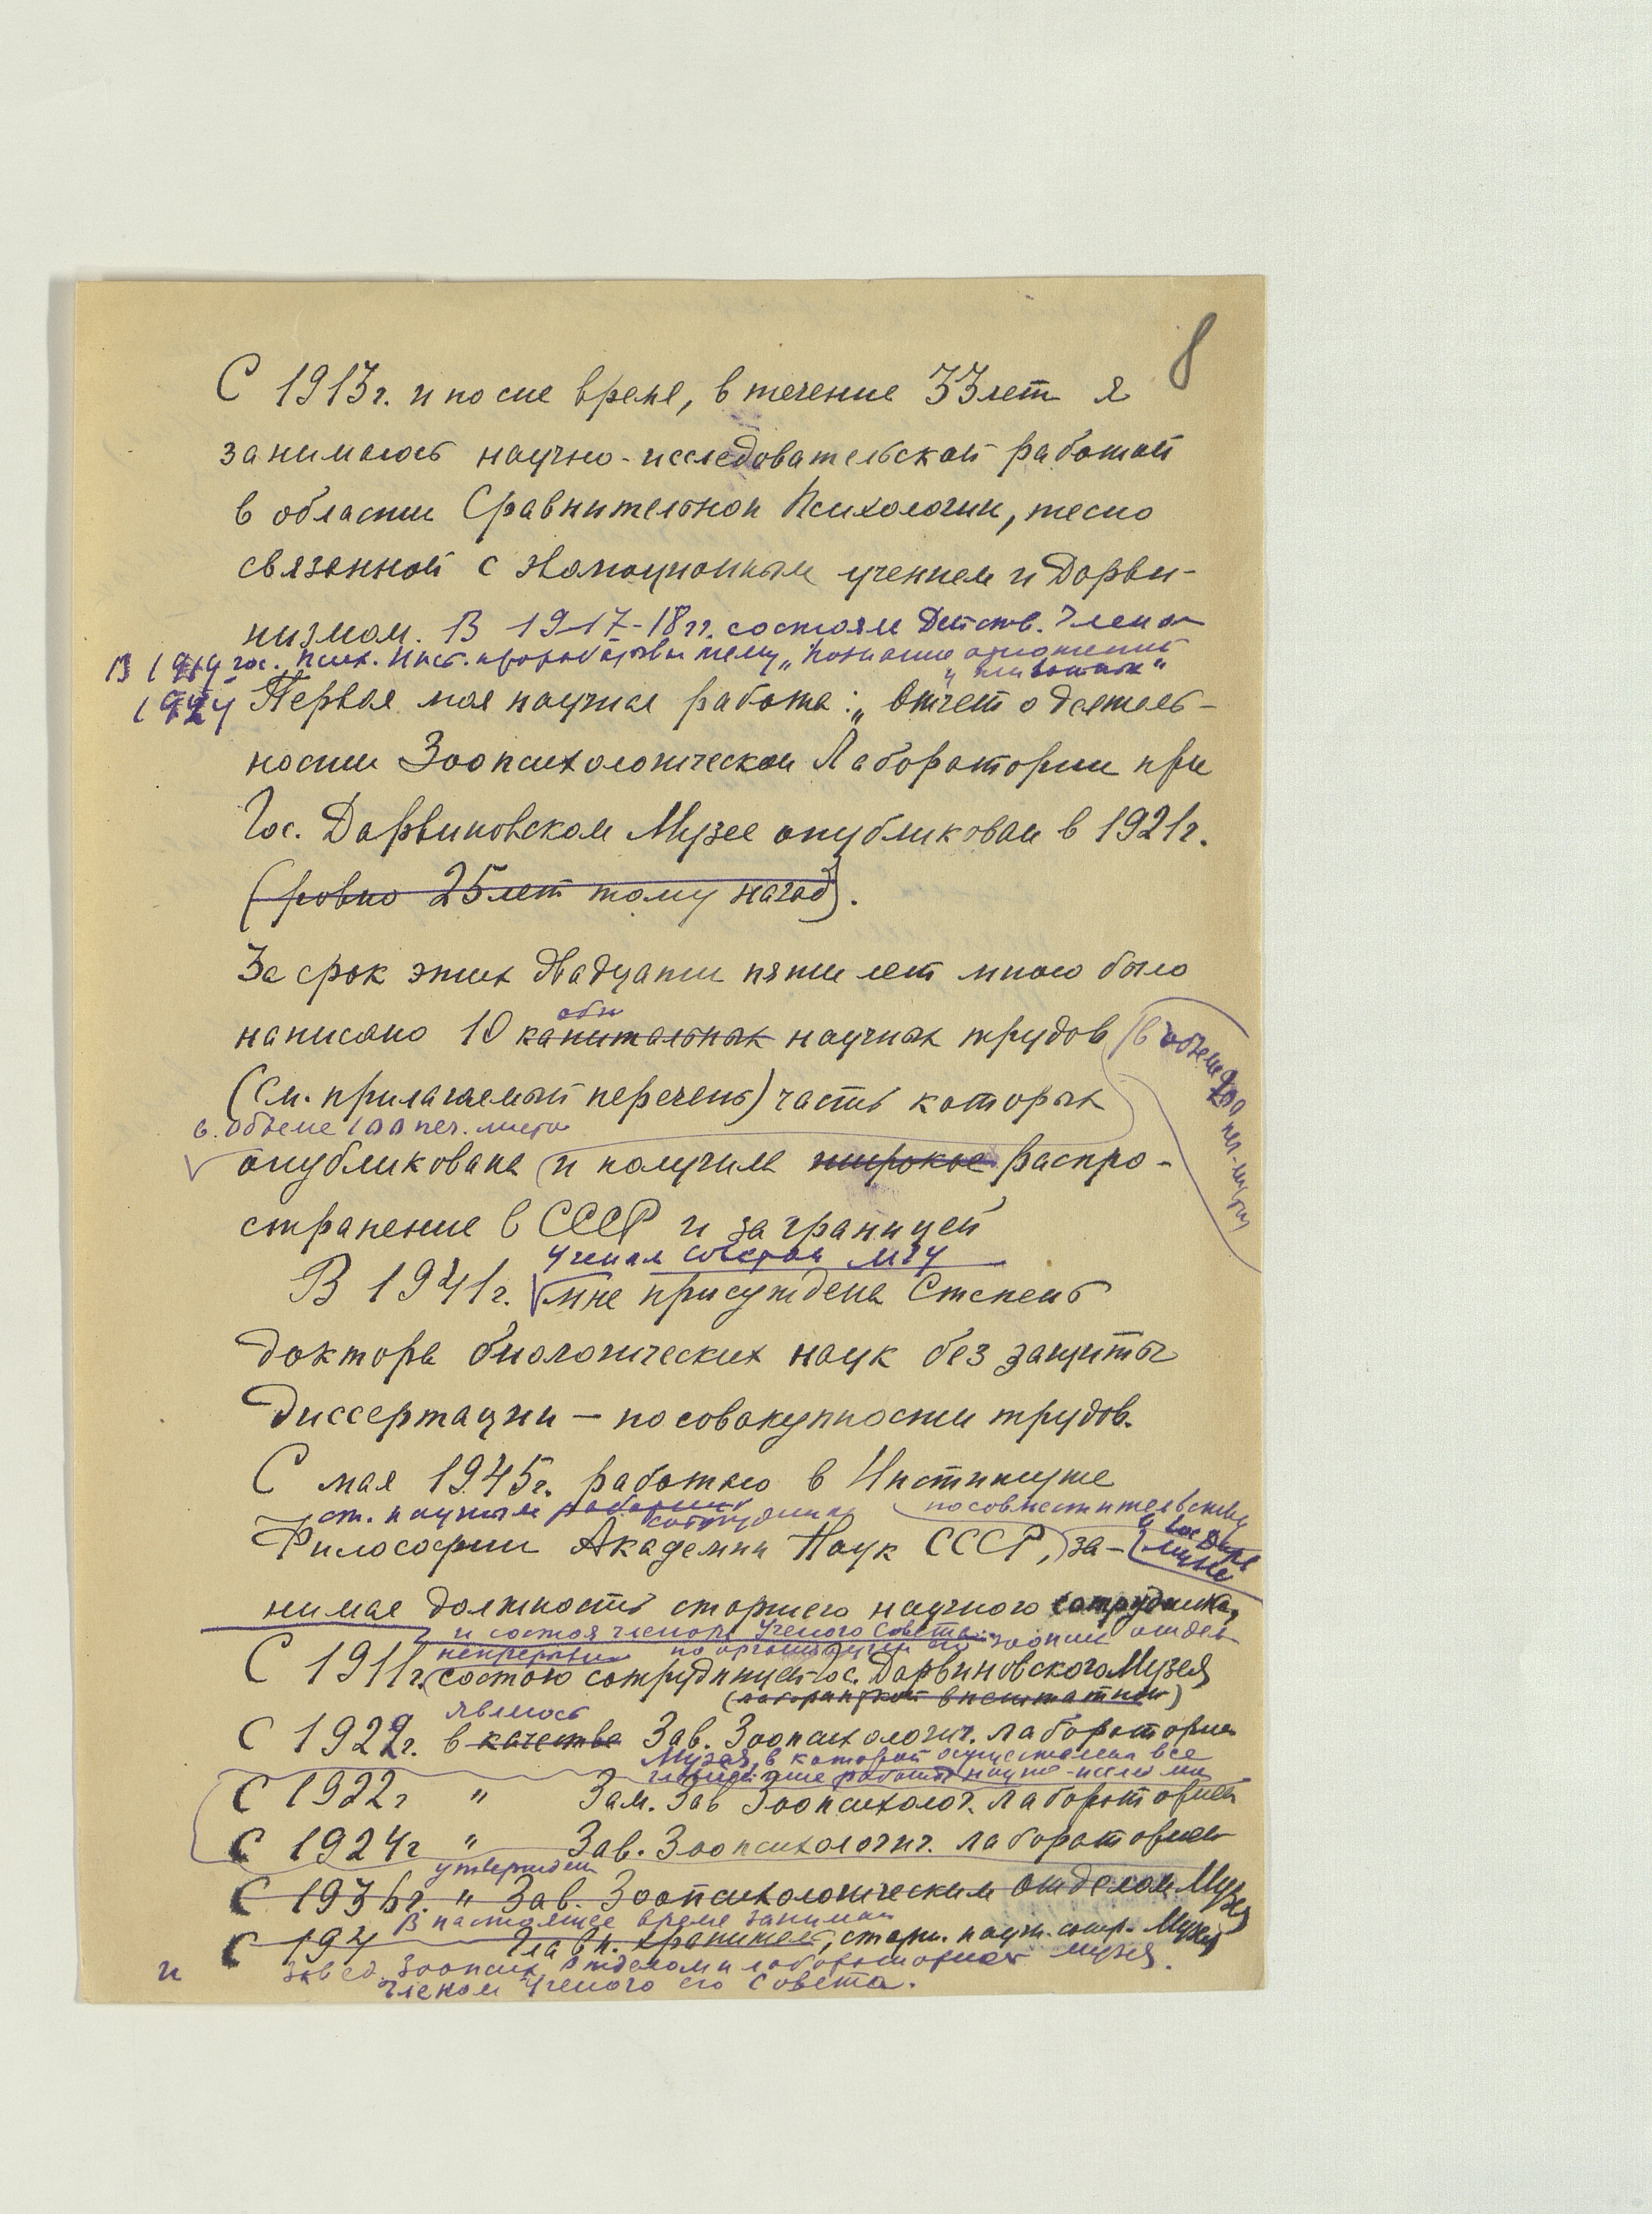 8
С 1913г. и по сие время, в течение 33 лет я
занимаюсь научно-исследовательской работой
в области Сравнительной Психологии, тесно
связанной с эволюционным учением и Дарви-
низмом. В 1917-18 гг. состояла Действ. Членом
В 1919 гос. псих. инст. "познание отношений
у животных"
1924 Первая моя научная работа: „Отчет о деятель-
ности Зоопсихологической Лаборатории при
Гос. Дарвиновском Музее опубликован в 1921г.
(ровно 25 лет тому назад).
За срок этих двадцати пяти лет мною было
написано 10 капитальных научных трудов (в объеме 200 печ. листов
(см. прилагаемый перечень) часть которых
в объеме 100 печ. листов
опубликована и получила широкое распро-
странение в СССР и за границей
Ученым советом МГУ
В 1941г. мне присуждена Степень
доктора биологических наук без защиты
диссертации — по совокупности трудов.
С мая 1945г. работаю в Институте
ст. научным сотрудником по совместительству
Философии Академии Наук СССР, за-
в Гос Дарв музее
нимая должность старшего научного сотрудника,
и состоя членом Ученого Совета по организации зоопсих отдел
непрерывно
С 1911г. состою сотрудницей Гос. Дарвиновского Музея
(лаборанткой внештатной)
являюсь
С 1922г. в качестве Зав. Зоопсихологич. лаборатории
Музея, в которой осуществлены все
работы научно-
С 1922г " Зам. Зав Зоопсихолог. лабораторией
С 1924г " Зав. Зоопсихологич. лабораторией
утвержден
С 1936г. " Зав. Зоопсихологическим отделом Музея
В настоящее время занимаю
С 194 Главн. хранитель, старш. научн. сотр. Музея
и завед. Зоопсих. Отделом и лабораторией музея.
Членом Ученого его Совета.